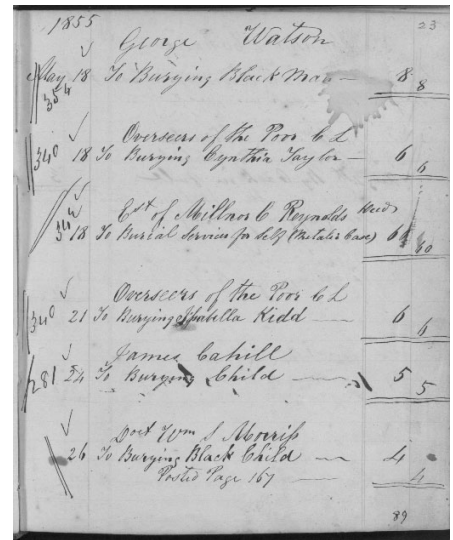 1855 23
George Watson
May 18 To Burying Black Man — 8 8
354
Overseers of the Poor C L
340 18 To Burying Cynthia Taylor — 6 6
Est of Millnor C Reynolds
18 To Burial Services for Self (Metalic Case) 60
Overseers of the Poor C L
340 21 To Burying Isabella Kidd — 6 6
James Cahill
281 24 To Burying Child — 5 5
Doct Wm S Morriss
26 To Burying Black Child — 4 4
Posted Page 167
89